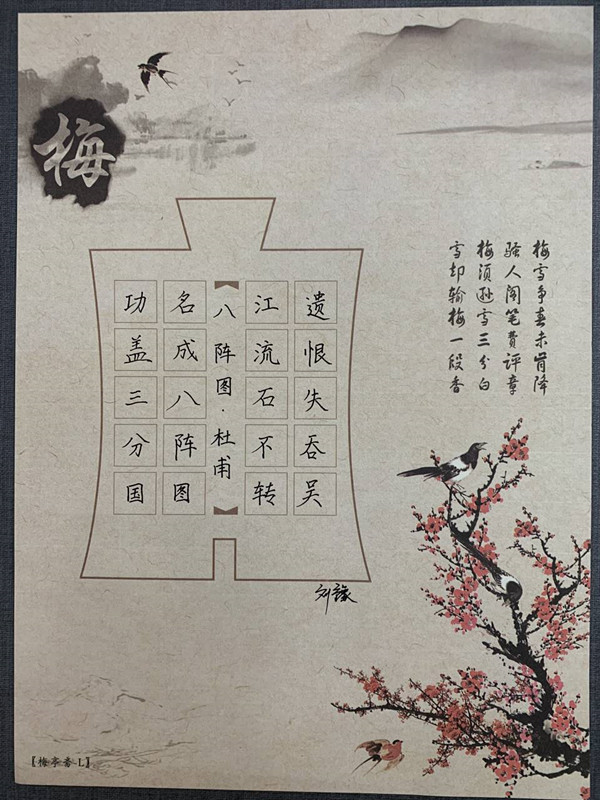 梅
梅雪争春未肯降
骚人阁笔费评章
梅须逊雪三分白
雪却输梅一段香
功盖三分国
名成八阵图
八阵图·杜甫
江流石不转
遗恨失吞吴
【梅亭香-L】